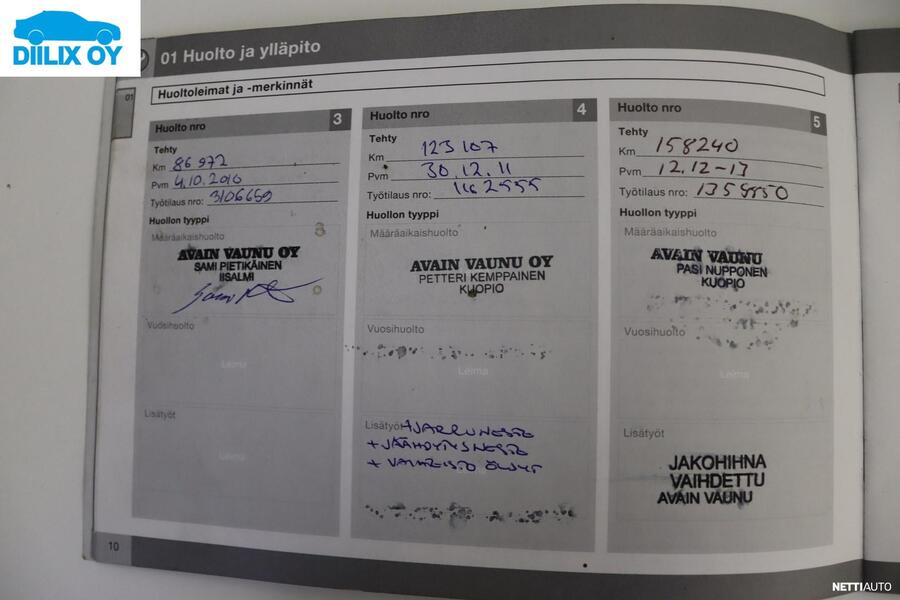 DIILIX OY
01 Huolto ja ylläpito
01
Huoltoleimat ja -merkinnät
Huolto nro 3
Tehty
Km 86 972
Pvm 4.10.2010
Työtilaus nro: 3106659
Huollon tyyppi
Määräaikaishuolto
AVAIN VAUNU OY
SAMI PIETIKÄINEN
IISALMI
Vuosihuolto
Leima
Lisätyöt
Leima
Huolto nro 4
Tehty
Km 123 107
Pvm 30.12.11
Työtilaus nro: 1162555
Huollon tyyppi
Määräaikaishuolto
AVAIN VAUNU OY
PETTERI KEMPPAINEN
KUOPIO
Vuosihuolto
Leima
Lisätyöt +JARRUNESTE
+JÄÄHDYTYSNESTE
+ VAIHTEISTO ÖLJYT
Huolto nro 5
Tehty
Km 158240
Pvm 12.12-13
Työtilaus nro: 1358850
Huollon tyyppi
Määräaikaishuolto
AVAIN VAUNU
PASI NUPPONEN
KUOPIO
Vuosihuolto
Leima
Lisätyöt
JAKOHIHNA
VAIHDETTU
AVAIN VAUNU
10
NETTIAUTO